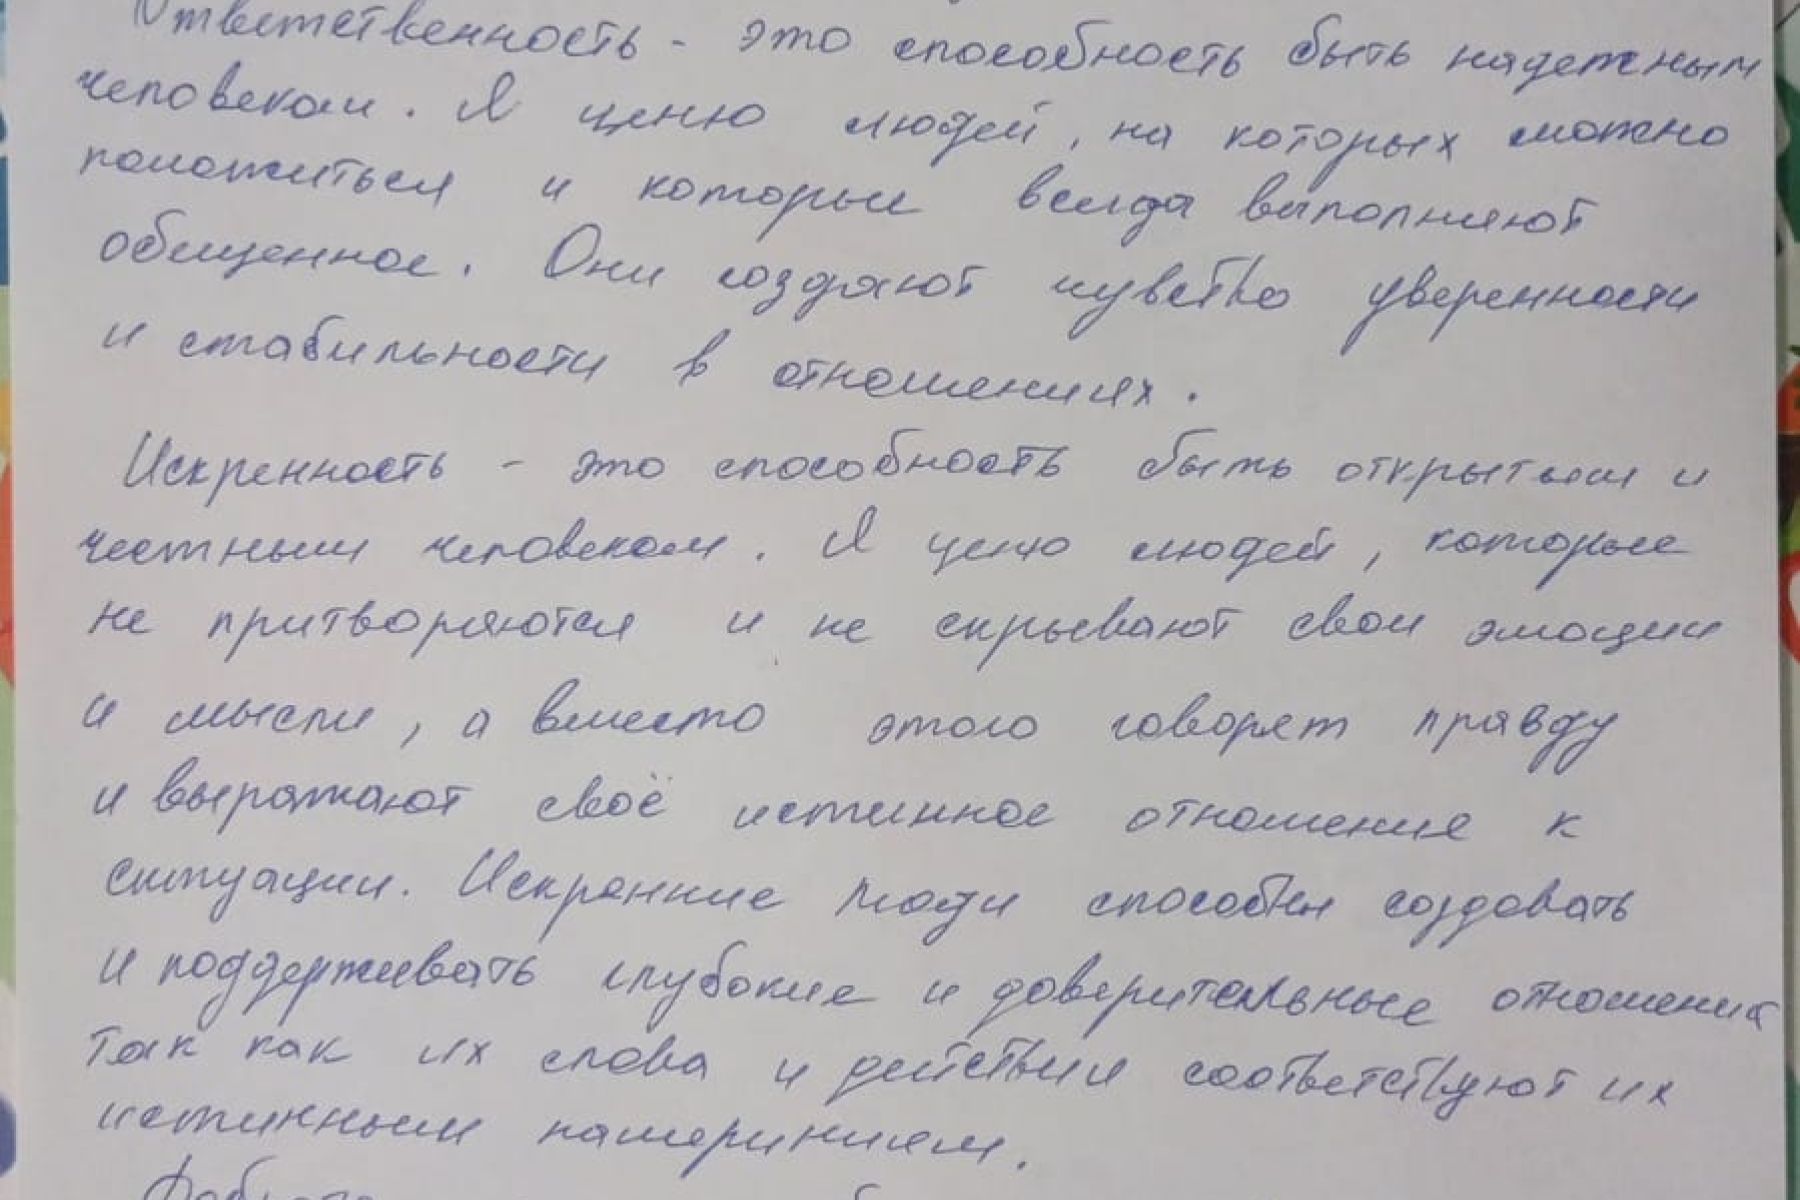 Ответственность - это способность быть надежным
человеком. Я ценю людей, на которых можно
положиться и которые всегда выполняют
обещенное. Они создают чувство уверенности
и стабильности в отношениях.
Искренность - это способность быть открытым и
честным человеком. Я ценю людей, которые
не притворяются и не скрывают свои эмоции
и мысли, а вместо этого говорят правду
и выражают своё истинное отношение к
ситуации. Искренние люди способны создовать
и поддерживать глубокие и доверительные отношения
так как их слова и действия соответствуют их
истинным намериниям.